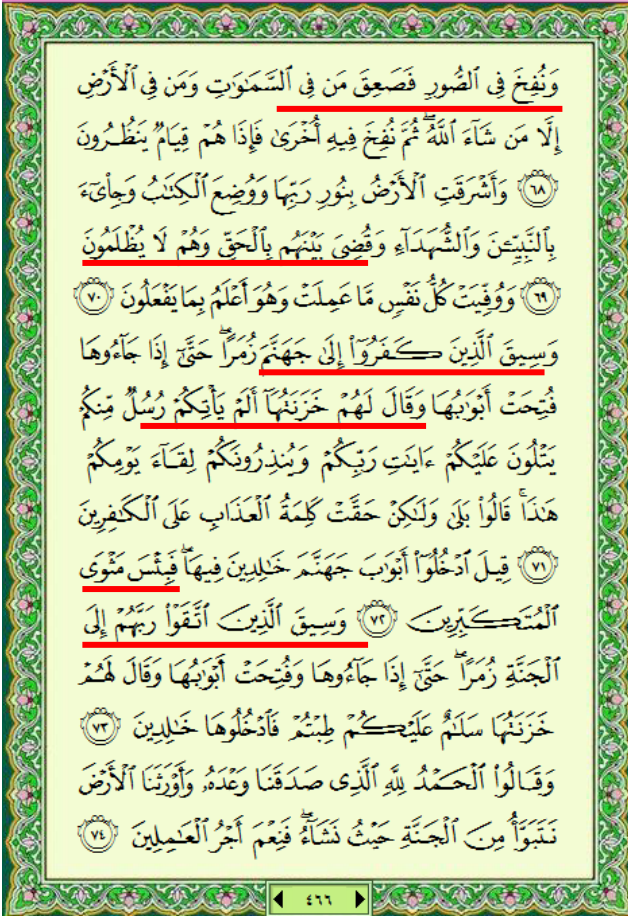 وَنُفِخَ فِى ٱلصُّورِ فَصَعِقَ مَن فِى ٱلسَّمَٰوَٰتِ وَمَن فِى ٱلْأَرْضِ
إِلَّا مَن شَآءَ ٱللَّهُ ۖ ثُمَّ نُفِخَ فِيهِ أُخْرَىٰ فَإِذَا هُمْ قِيَامٌ يَنظُرُونَ
٦٨ وَأَشْرَقَتِ ٱلْأَرْضُ بِنُورِ رَبِّهَا وَوُضِعَ ٱلْكِتَٰبُ وَجِا۟ىٓءَ
بِٱلنَّبِيِّـۧنَ وَٱلشُّهَدَآءِ وَقُضِىَ بَيْنَهُم بِٱلْحَقِّ وَهُمْ لَا يُظْلَمُونَ
٦٩ وَوُفِّيَتْ كُلُّ نَفْسٍ مَّا عَمِلَتْ وَهُوَ أَعْلَمُ بِمَا يَفْعَلُونَ ٧٠
وَسِيقَ ٱلَّذِينَ كَفَرُوٓا۟ إِلَىٰ جَهَنَّمَ زُمَرًا ۖ حَتَّىٰٓ إِذَا جَآءُوهَا
فُتِحَتْ أَبْوَٰبُهَا وَقَالَ لَهُمْ خَزَنَتُهَآ أَلَمْ يَأْتِكُمْ رُسُلٌ مِّنكُمْ
يَتْلُونَ عَلَيْكُمْ ءَايَٰتِ رَبِّكُمْ وَيُنذِرُونَكُمْ لِقَآءَ يَوْمِكُمْ
هَٰذَا ۚ قَالُوا۟ بَلَىٰ وَلَٰكِنْ حَقَّتْ كَلِمَةُ ٱلْعَذَابِ عَلَى ٱلْكَٰفِرِينَ
٧١ قِيلَ ٱدْخُلُوٓا۟ أَبْوَٰبَ جَهَنَّمَ خَٰلِدِينَ فِيهَا ۖ فَبِئْسَ مَثْوَى
ٱلْمُتَكَبِّرِينَ ٧٢ وَسِيقَ ٱلَّذِينَ ٱتَّقَوْا۟ رَبَّهُمْ إِلَى
ٱلْجَنَّةِ زُمَرًا ۖ حَتَّىٰٓ إِذَا جَآءُوهَا وَفُتِحَتْ أَبْوَٰبُهَا وَقَالَ لَهُمْ
خَزَنَتُهَا سَلَٰمٌ عَلَيْكُمْ طِبْتُمْ فَٱدْخُلُوهَا خَٰلِدِينَ ٧٣
وَقَالُوا۟ ٱلْحَمْدُ لِلَّهِ ٱلَّذِى صَدَقَنَا وَعْدَهُۥ وَأَوْرَثَنَا ٱلْأَرْضَ
نَتَبَوَّأُ مِنَ ٱلْجَنَّةِ حَيْثُ نَشَآءُ ۖ فَنِعْمَ أَجْرُ ٱلْعَٰمِلِينَ ٧٤
٤٦٦